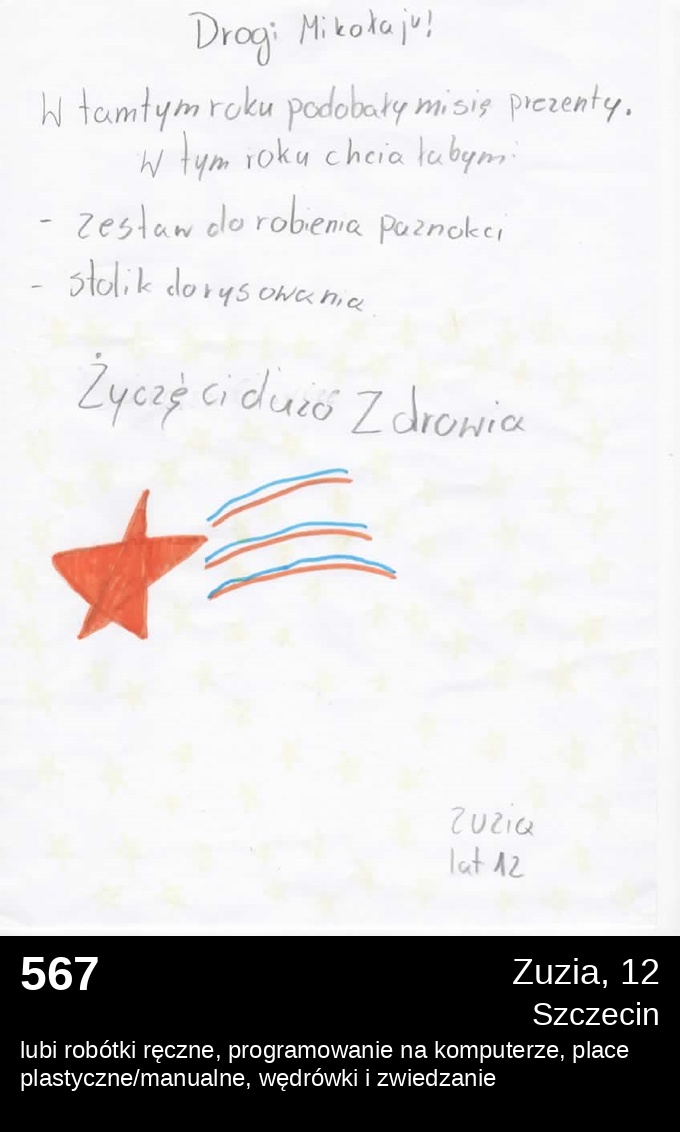 Drogi Mikołaju!
W tamtym roku podobały mi się prezenty.
W tym roku chciałabym:
- zestaw do robienia paznokci
- stolik do rysowania
Życzę ci dużo Zdrowia
Zuzia
lat 12
567
Zuzia, 12
Szczecin
lubi robótki ręczne, programowanie na komputerze, place
plastyczne/manualne, wędrówki i zwiedzanie